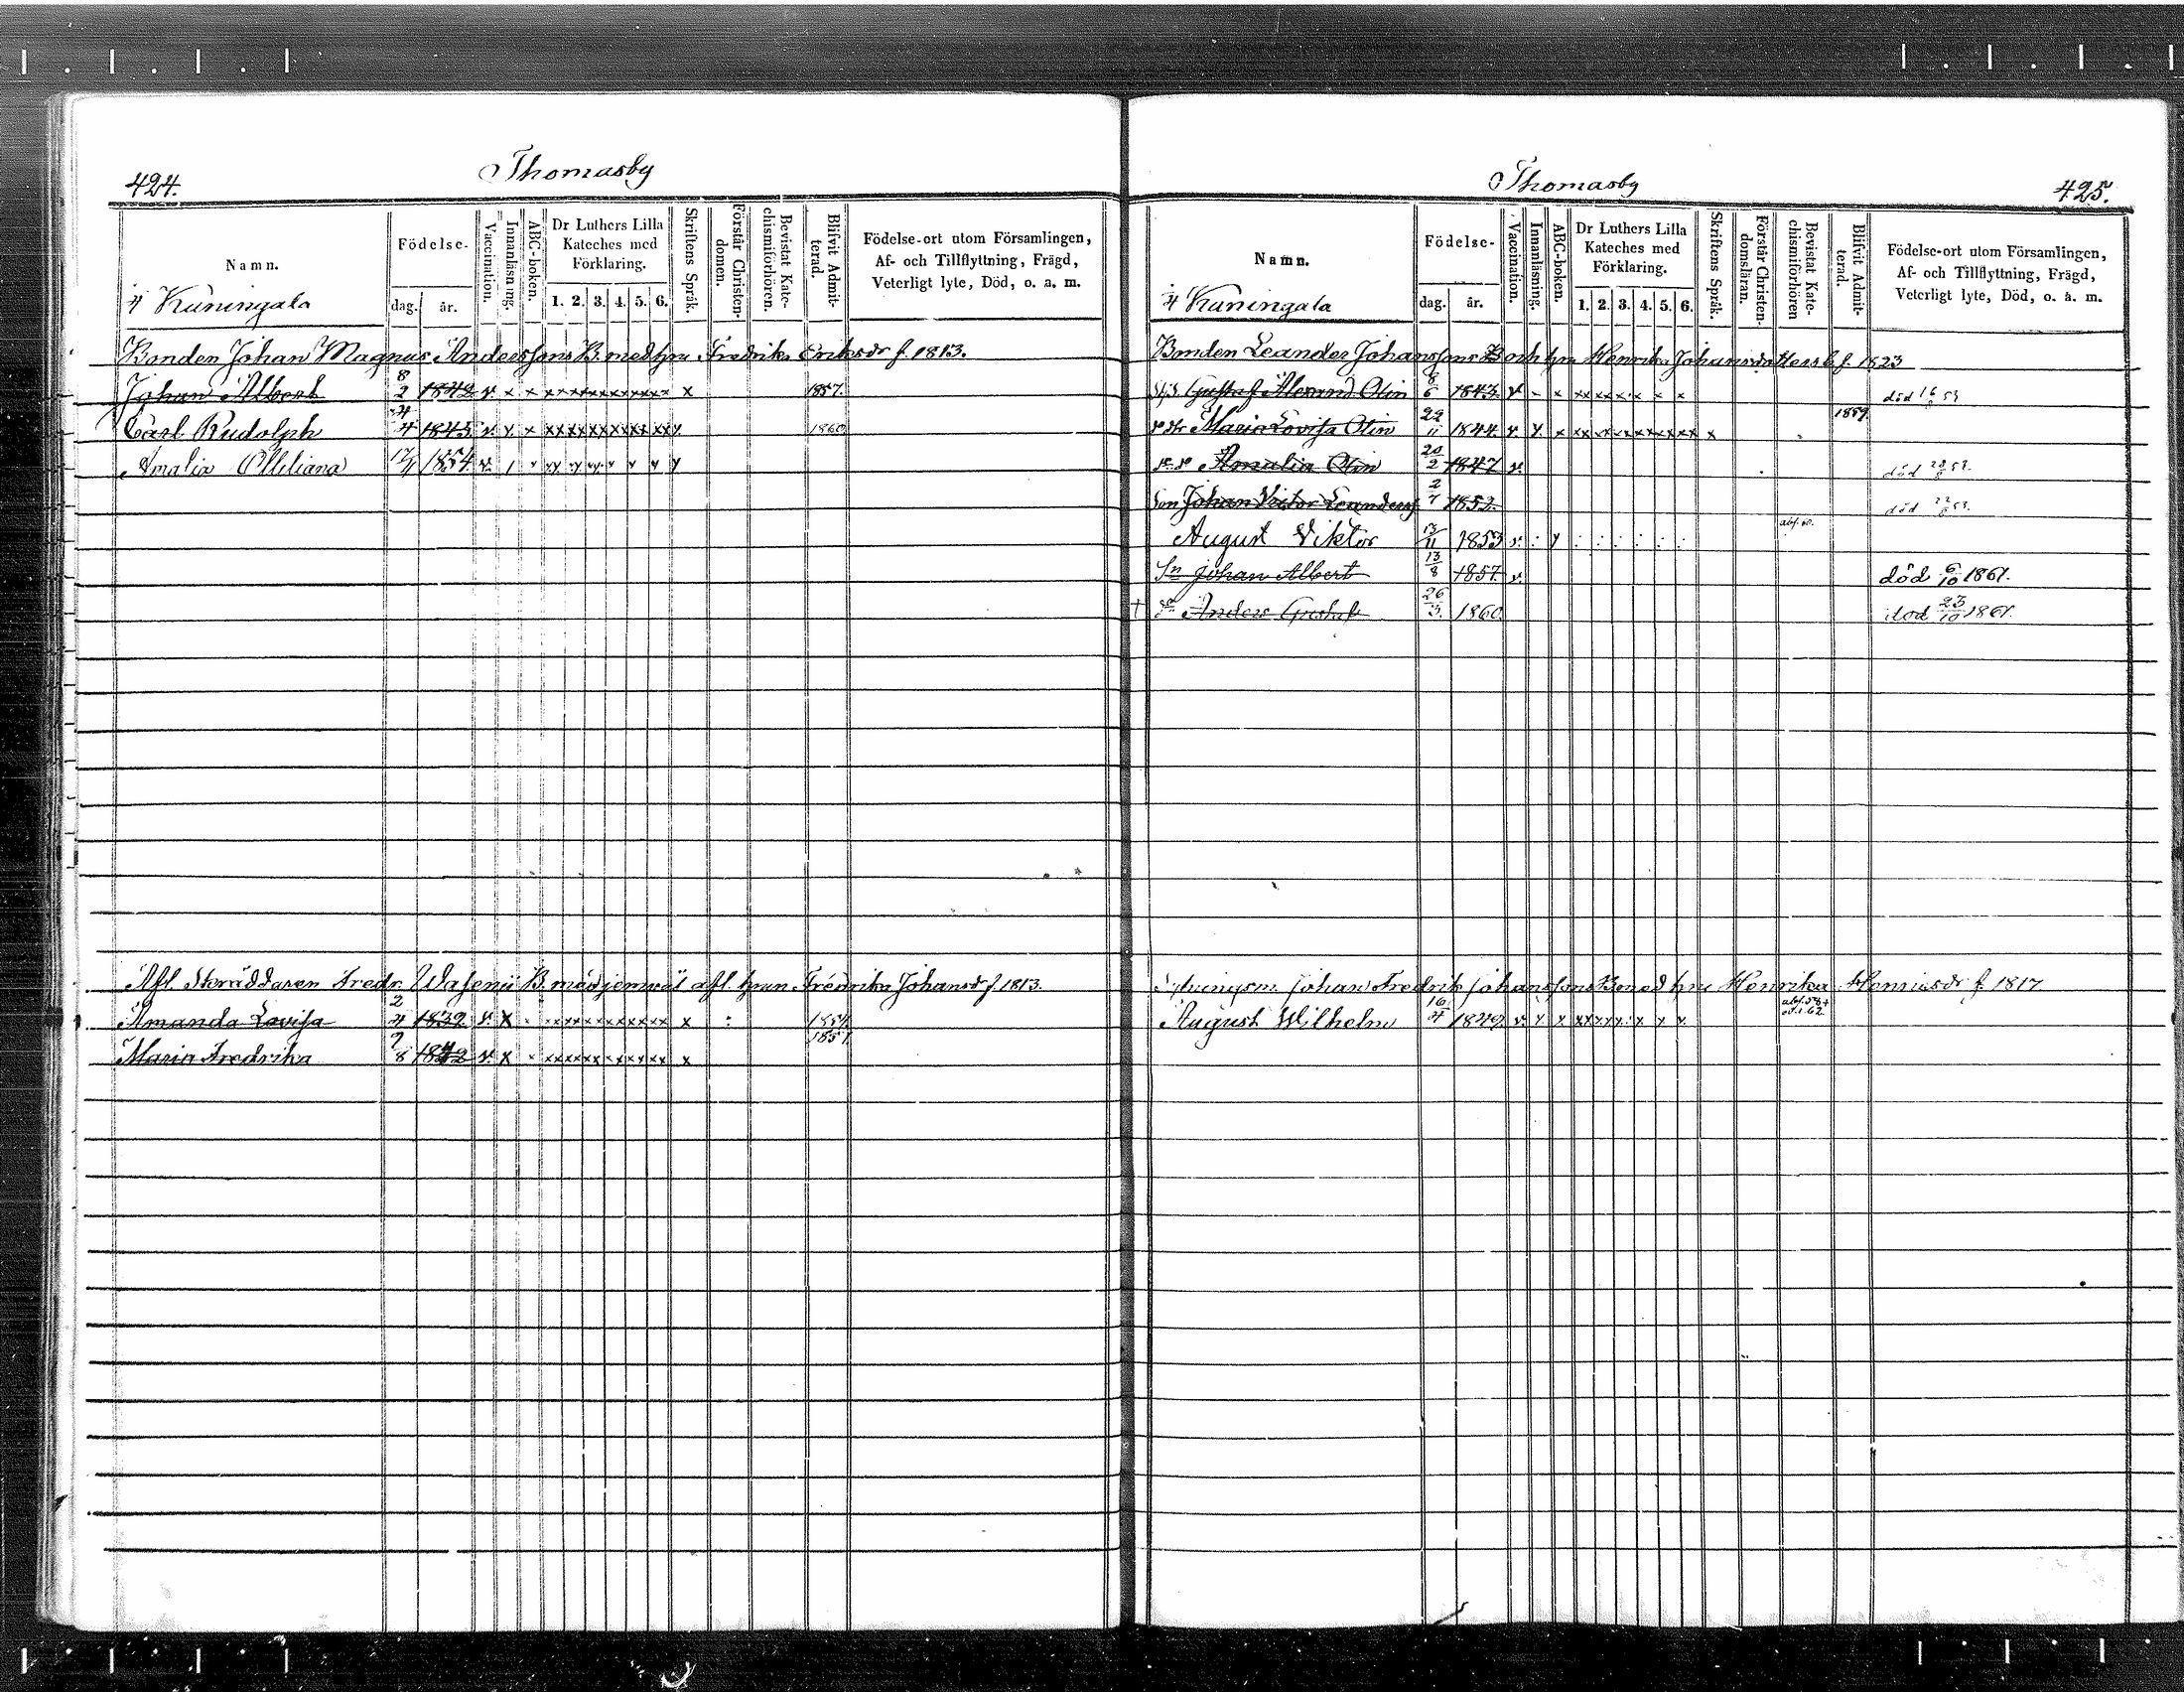 424.
Thomasby
Namn.
Födelse-
dag. år.
Vaccination.
Innanläsning.
ABC-boken.
Dr Luthers Lilla
Kateches med
Förklaring.
1. 2. 3. 4. 5. 6.
Skriftens Språk.
Förstår Christen-
domen.
Bevistat Kate-
chismiförhören.
Blifvit Admit-
terad.
Födelse-ort utom Församlingen,
Af- och Tillflyttning, Frägd,
Veterligt lyte, Död, o. a. m.
4 Kuningala
Bonden Johan Magnus Anderssons B. med hu Fredrika Eriksdr f. 1813.
Johan Albert 8/2 1842 v. x x xxxxxxxxxxx x 1857.
Carl Rudolph 4/4 1843 v. x x xxxxxxxxxxxx x 1860
Amalia 1854 v.
Afl. Skräddaren Fredr. Wasenii B. med jemväl afl. hrun Fredrika Johansdr f. 1813.
Amanda Lovisa 2/4 1839 v. x xxxxxxxxxxx x 1854
Maria Fredrika 9/8 1842 v. x xxxxxxxxxxx x 1857.
425.
Thomasby
Namn.
Födelse-
dag. år.
Vaccination.
Innanläsning.
ABC-boken.
Dr Luthers Lilla
Kateches med
Förklaring.
1. 2. 3. 4. 5. 6.
Skriftens Språk.
Förstår Christen-
domsläran.
Bevistat Kate-
chismiförhören
Blifvit Admit-
terad.
Födelse-ort utom Församlingen,
Af- och Tillflyttning, Frägd,
Veterligt lyte, Död, o. a. m.
4 Kuningala
Bonden Leander Johanssons B och hu Henrika Johansdotters b. f. 1823
Gustaf Alexand Olin 8/6 1843. v. död
Maria Lovisa Olin 22/11 1844. v. 1859.
Amalia Olin 20/2 1847 v. död
Son Johan Victor Leanderss. 2/7 1852. död
August Viktor 13/11 1853 v.
Sn Johan Albert 13/8 1857. v. död 6/10 1861.
† Anders Gustaf 26/3. 1860. död 23/10 1861.
Johan Fredrik Johanssons B med hu Henrika Henriksdr f. 1817
August Wilhelm 16/4 1849. v.